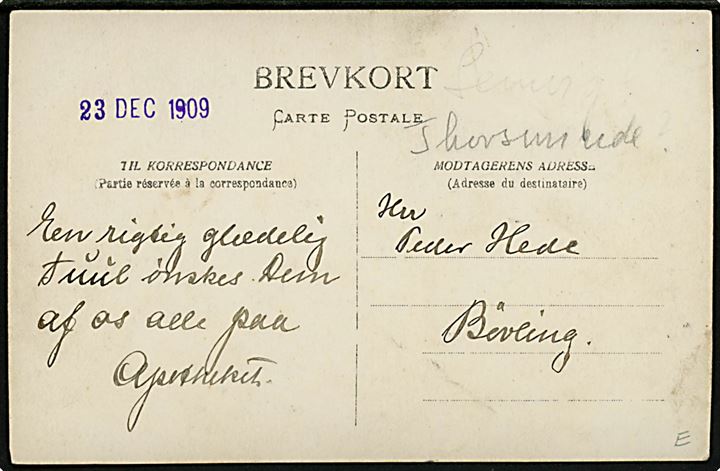 BREVKORT
23 DEC 1909
CARTE POSTALE
Thorsminde?
TIL KORRESPONDANCE
(Partie réservée à la correspondance)
MODTAGERENS ADRESSE
(Adresse du destinataire)
En rigtig glædelig
Juul ønskes Dem
af os alle paa
Apotheket.
Hrr
Peder Hede
Bövling.
E